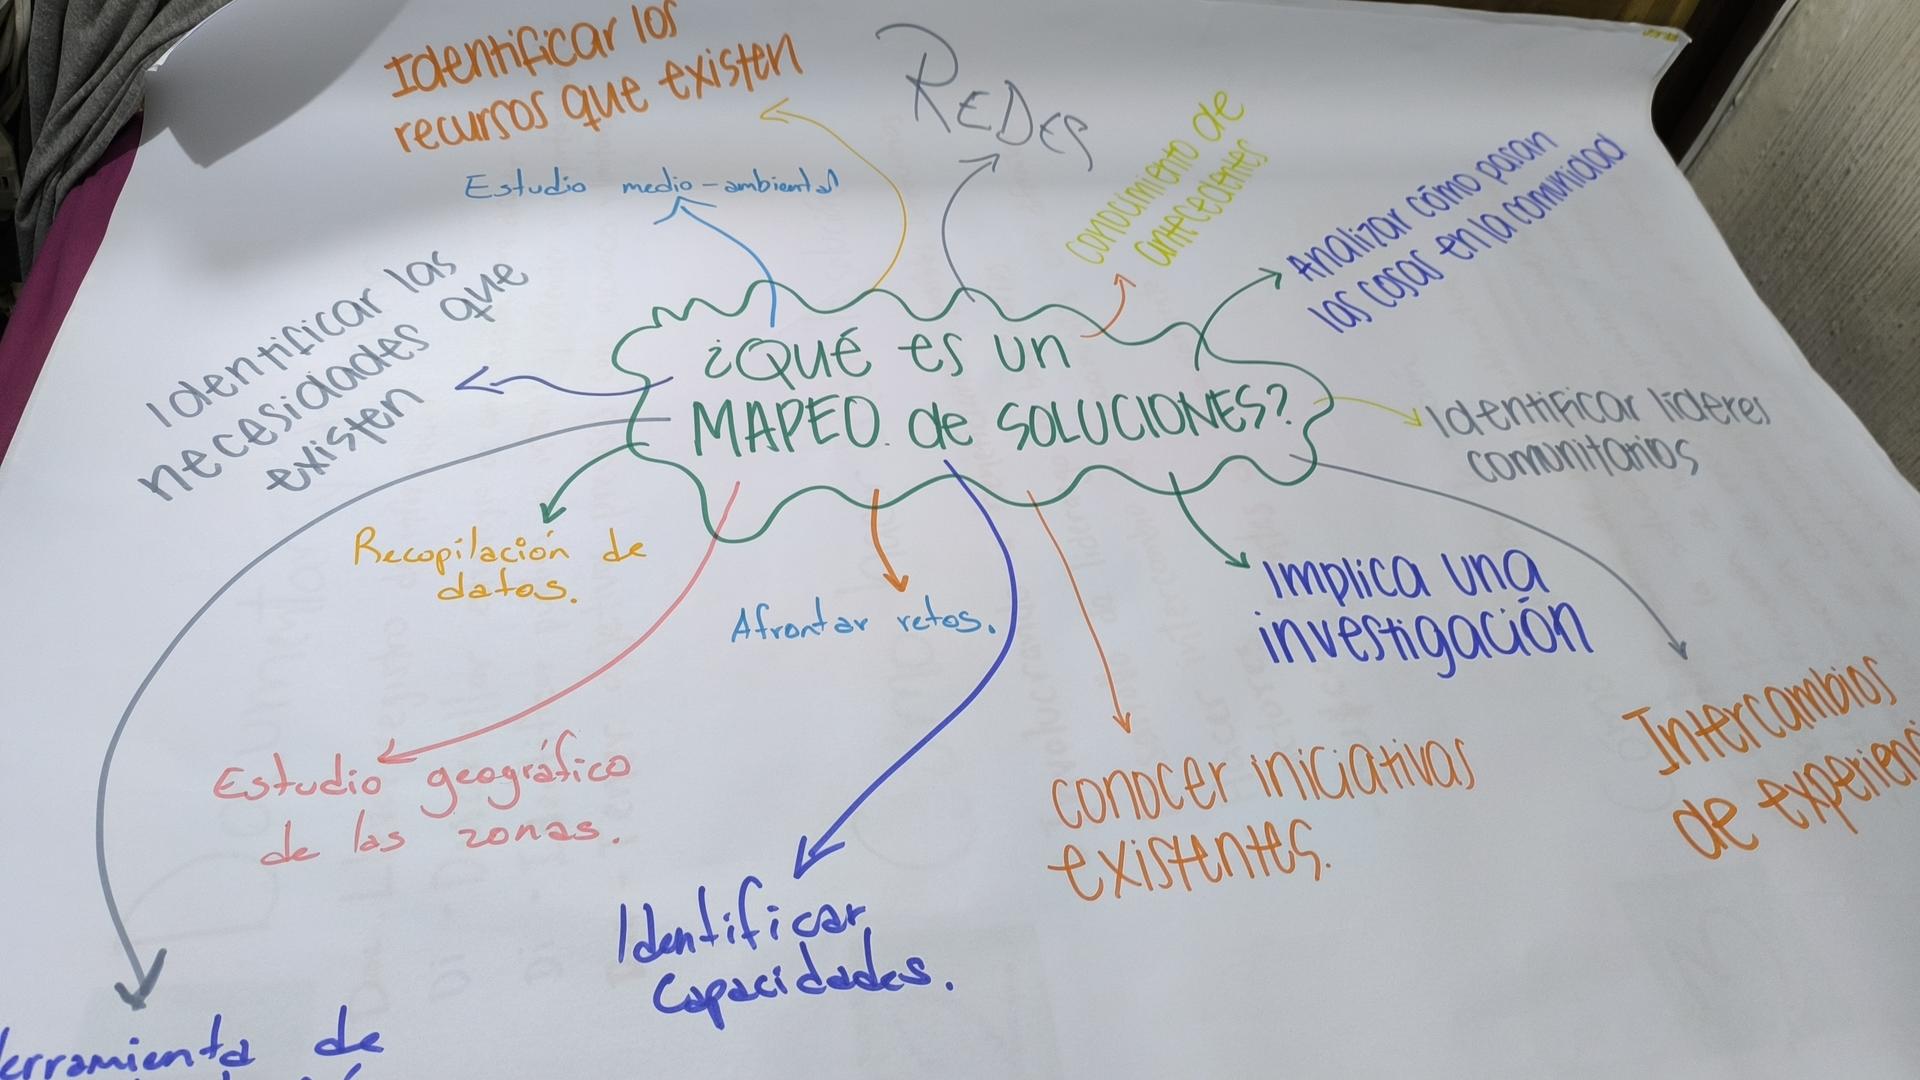 Identificar los
recursos que existen
REDES
Estudio medio-ambiental
conocimiento de
antecedentes
Analizar cómo pasan
las cosas en la comunidad
Identificar las
necesidades que
existen
¿QUÉ es un
MAPEO de SOLUCIONES?
Identificar líderes
comunitarios
Recopilación de
datos.
Afrontar retos.
Implica una
investigación
Estudio geográfico
de las zonas.
conocer iniciativas
existentes.
Intercambios
de
Identificar
Capacidades.
de